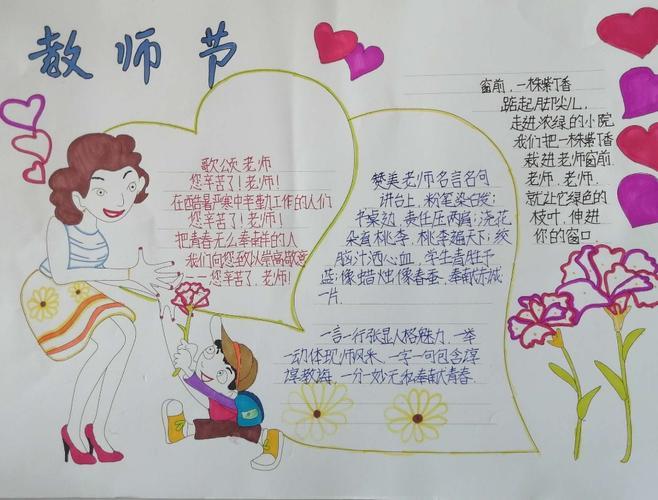 教师节
歌颂老师
您辛苦了!老师!
在西昔暑严寒中辛勤工作的人们
您辛苦了!老师!
把青春无么奉佯的人
我们向您致以崇高敬意
——您辛苦了,老师!
赞美老师名言名句
讲台上,粉笔染白发;
书桌边,责任压两肩;浇花
朵育桃李,桃李趟天下;绞
脑汁洒心血,学生青胜于
蓝;像蜡烛像春蚕,奉献赤诚
一片.
一言一行张显人格魅力,一举
一动体现师风采,一字一句包含谆
谆教诲,一分一妙无私奉献青春.
窗前,一株紫丁香
踮起脚尖儿,
走进浓绿的小院
我们把一株紫丁香
栽进老师窗前,
老师,老师,
就让它绿色的
枝叶,伸进
你的窗口